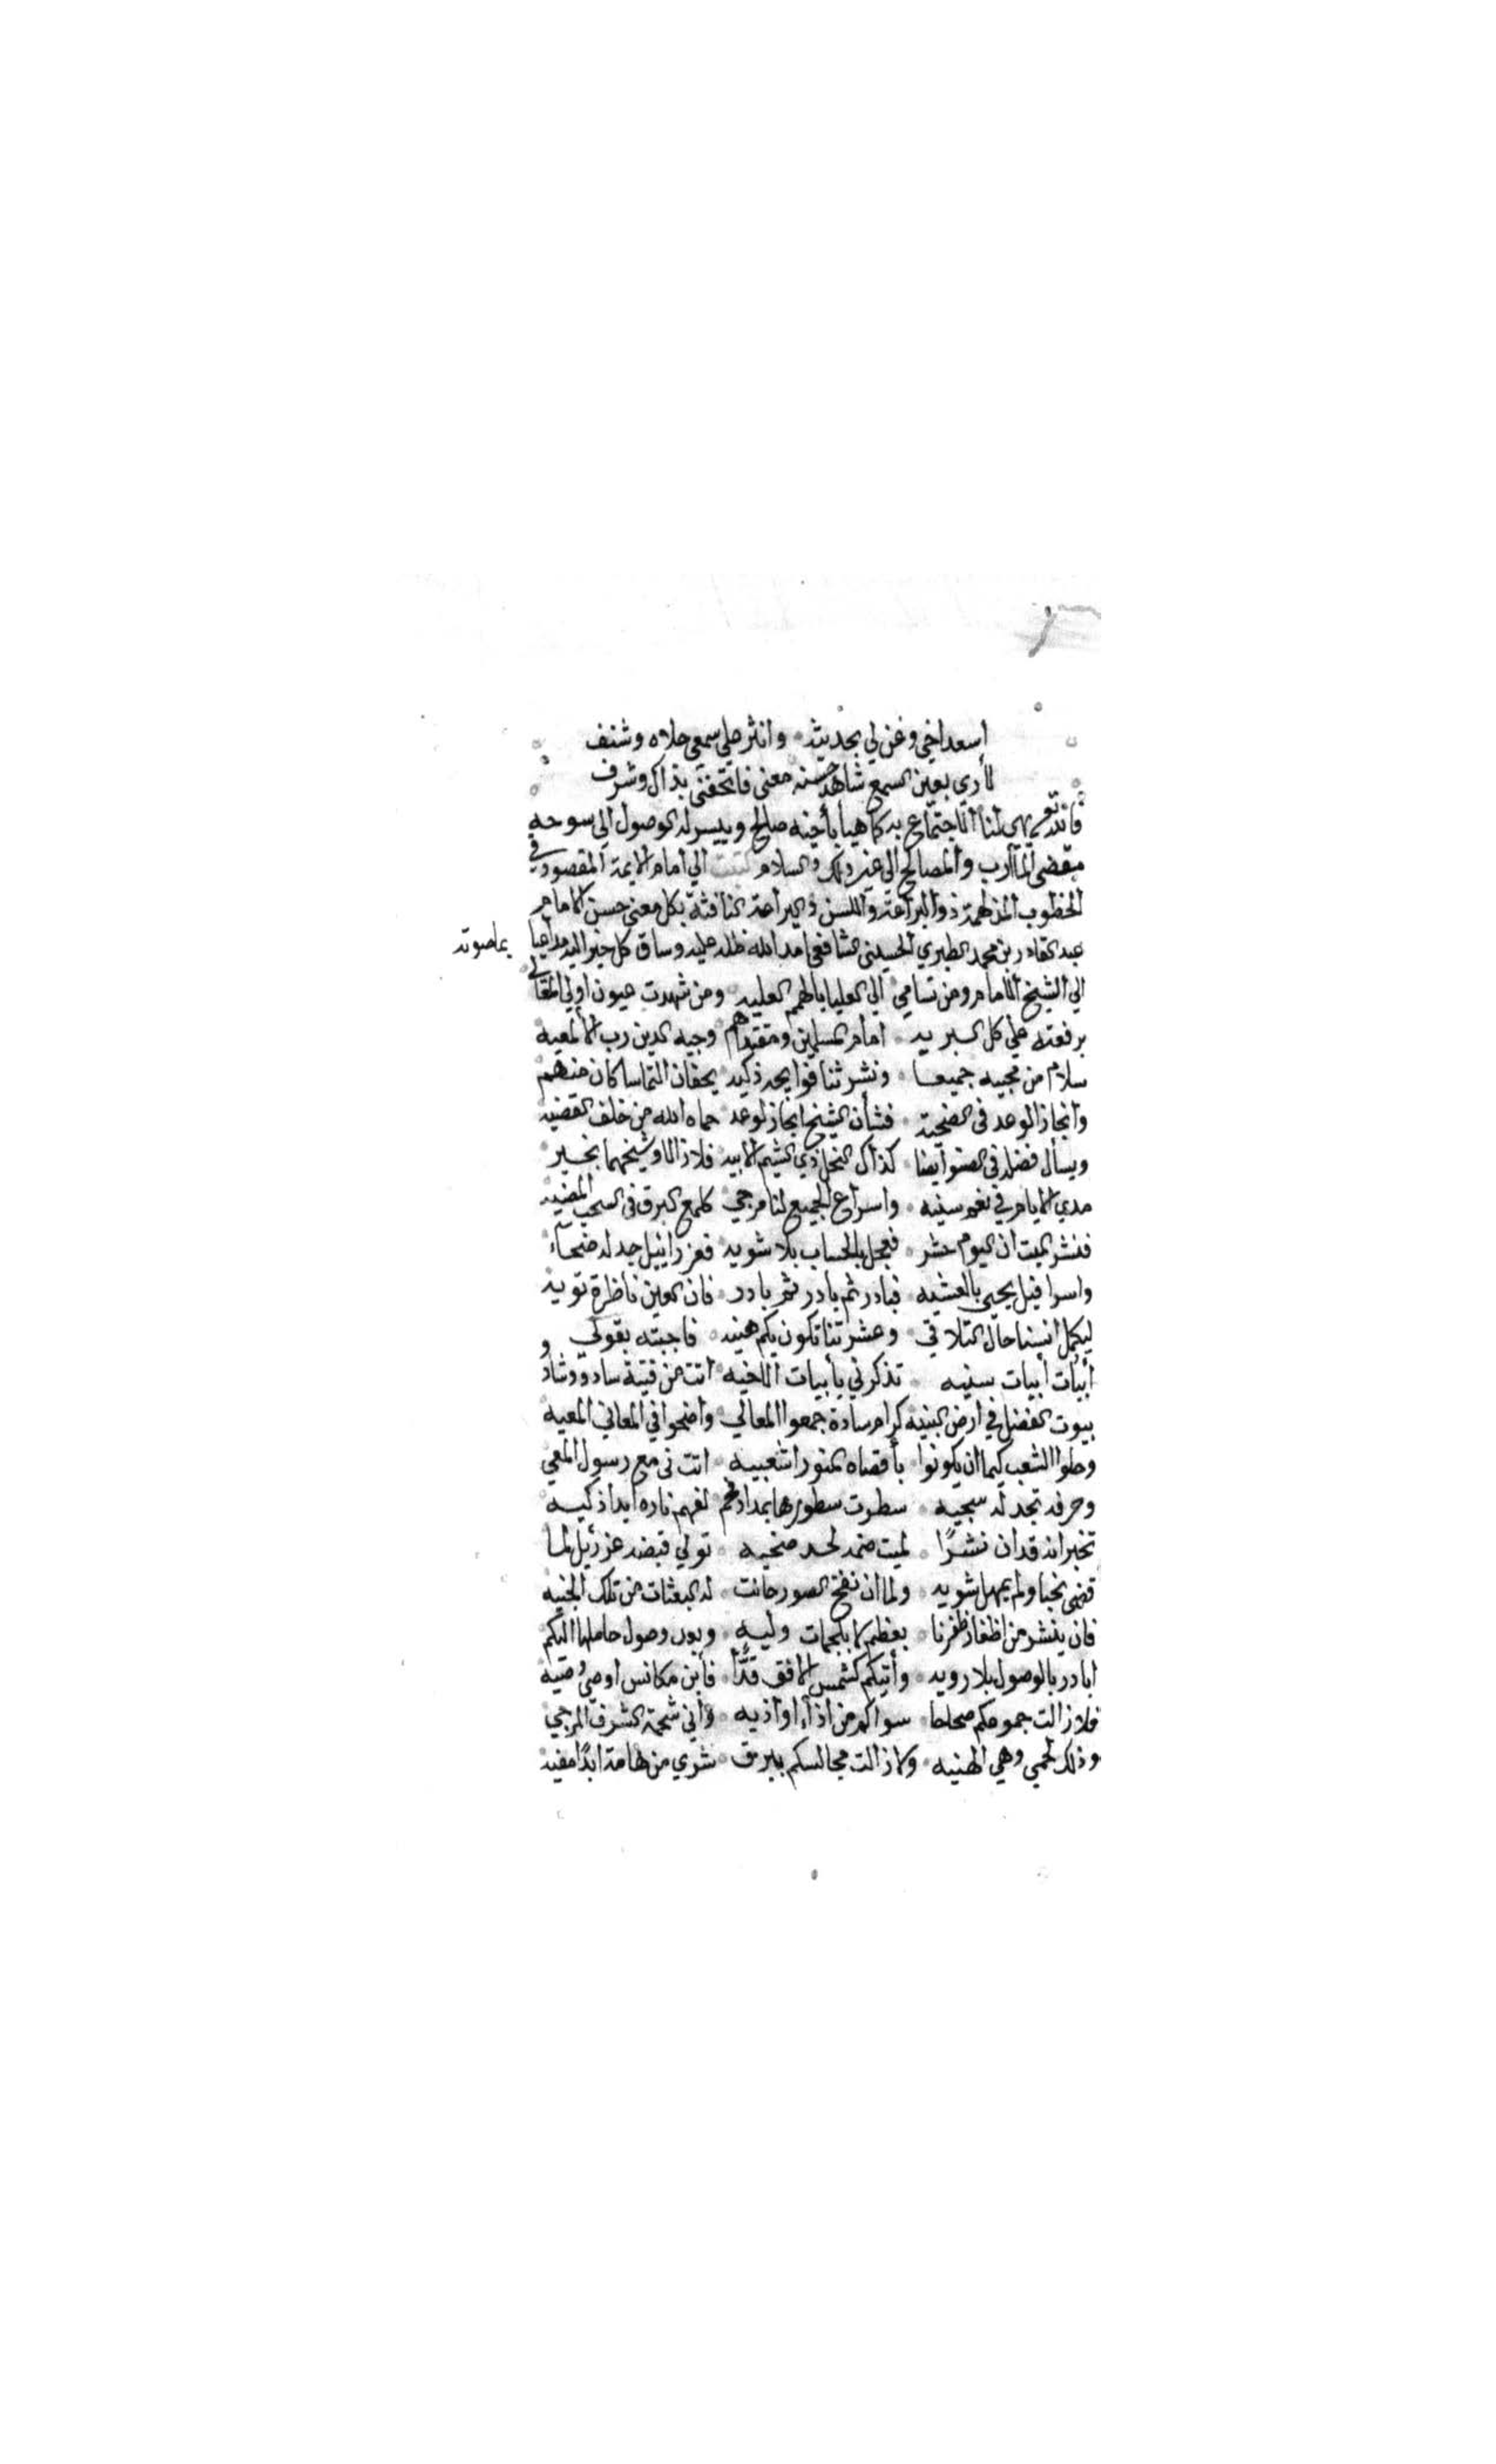 أسعد أخي وغن لي بحديثه وانثر علي سمعي حلاه وشنف
لأري بعين السمع شاهد حسنه معني فاتحفني بذاك وشرف
فالله تعالى يهي لنا الاجتماع به كما هيأ بأخيه صالح وييسر له الوصول الي سوحه
مقضي المآرب والمصالح الي غير ذلك والسلام كتبت الي امام الايمة المقصود في
الخطوب المدلهمة ذو البراعة واللسن واليراعة النافثة بكل معني حسن الامام
عبد القادر بن محمد الطبري الحسيني الشافعي مد الله ظله عليه وساق كل خير اليه مداعبا بما صوته
الي الشيخ الامام ومن تسامي الي العليا بالهمم العليه ومن شهدت عيون اولي المعالي
برفعته علي كل البريه امام المسلمين ومقتداهم وجيه الدين رب الالمعيه
سلام من محبيه جميعا ونشر ثنا فوايحه ذكيه يحفان التماسا كان منهم
وانجاز الوعد في الضحية فشأن الشيخ انجاز لوعد حماه الله من خلف القضيه
ويسأل فضله في الصنو ايضا كذاك النجل ذي الشيم الابيه فلازالا وشيخهما بخير
مدي الايام في نعم سنيه واسراع الجميع لنا مرجي كلمع البرق في السحب المضيه
فنشر الميت ان اليوم حشر فعجل بالحساب بلا شويه فعزراييل جد له ضحاء
واسرافيل يحيي بالعشيه فبادر ثم بادر ثم بادر فان العين ناظرة تويه
ليكمل أنسنا حال التلاقي وعشرتنا تكون بكم هنيه فاجبته بقولي و
أبيات أبيات سنيه تذكرني بأبيات الاخيه اتت من فتية سادو وشاد
بيوت الفضل في ارض البنيه كرام سادة جمعوا المعالي واضحوا في المعاني المعيه
وحلوا الشعب كيما ان يكونوا بأقصاه المنور اشعبيه اتت ني مع رسول المعي
وحرفه تجد له سجيه سطرت سطورها بمداد فحم لفهم ناره ابدا ذكيه
تخبر انه قد ان نشرًا لميت ضمه لحد ضحيه تولي قبضه عزرئيل لما
قضي نحبا ولم يمهل شويه ولما ان نفخ الصور حانت له البعثات من تلك الجنيه
فان ينشر من اظفار ظفرنا بعظم وليه وبعد وصول حاملها اليكم
ابادر بالوصول بلا رويه وأتيكم كشمس الافق فأبن مكانس اوصي وصيه
فلازالت جموعكم صحاحا سوالم من اذاء او اذيه واني شحمة الشرف المرجي
وذلك لحمي وهي الهنيه ولازالت مجالسكم ببرق شري من هامة ابدًا مضيه